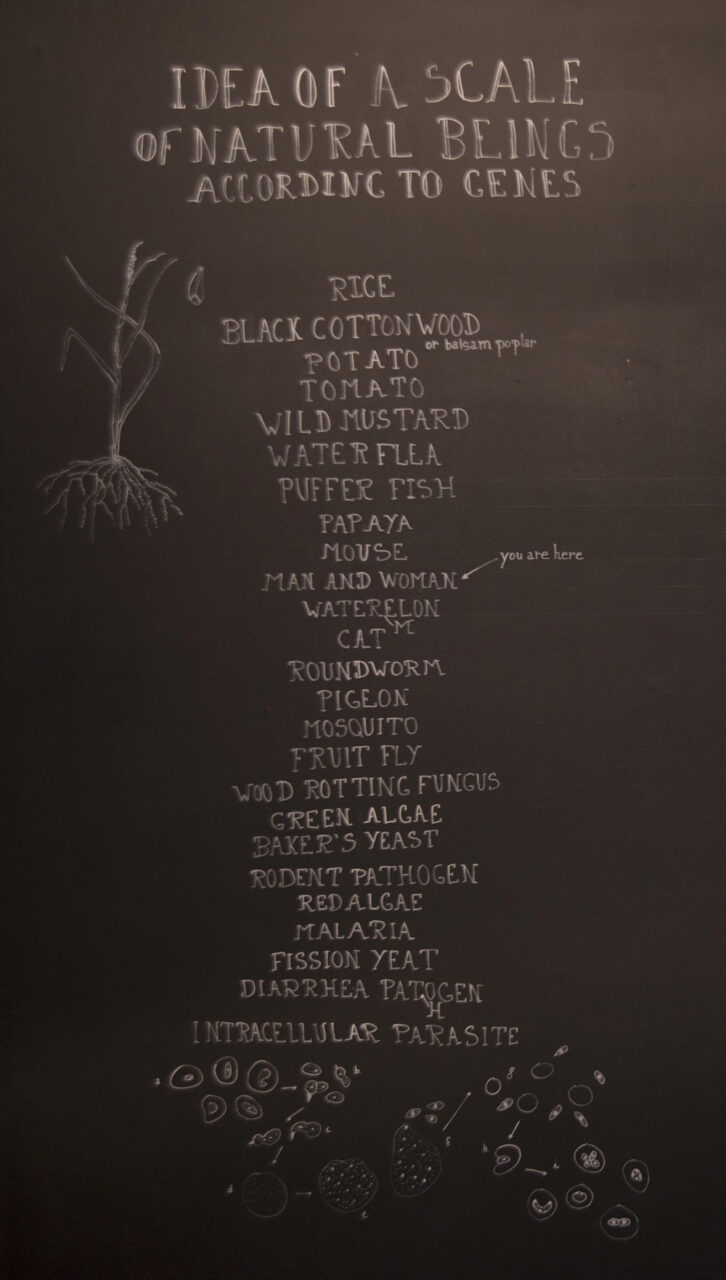 IDEA OF A SCALE
OF NATURAL BEINGS
ACCORDING TO GENES
RICE
BLACK COTTONWOOD
or balsam poplar
POTATO
TOMATO
WILD MUSTARD
WATER FLEA
PUFFER FISH
PAPAYA
MOUSE
you are here
MAN AND WOMAN
WATERELON
M
CAT
ROUNDWORM
PIGEON
MOSQUITO
FRUIT FLY
WOOD ROTTING FUNGUS
GREEN ALGAE
BAKER'S YEAST
RODENT PATHOGEN
RED ALGAE
MALARIA
FISSION YEAT
DIARRHEA PATOGEN
H
INTRACELLULAR PARASITE
a
b
c
d
e
f
h